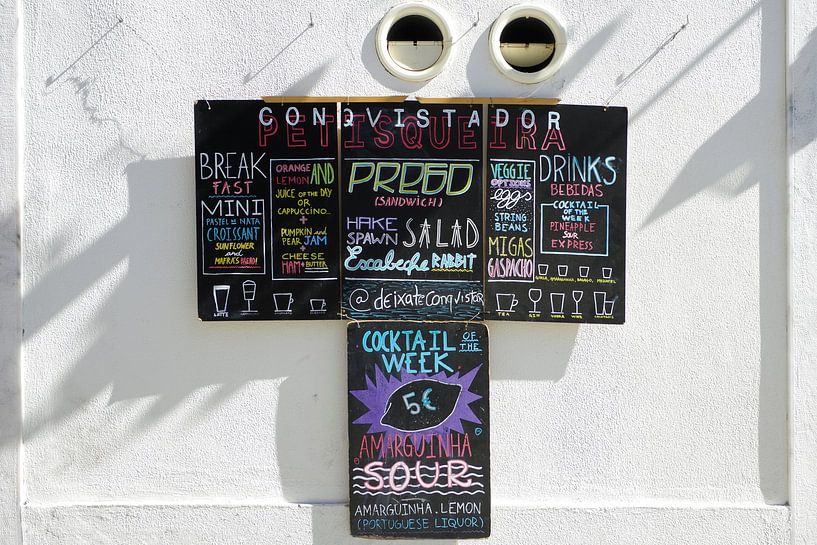 CONQVISTADOR
PETISQUEIRA
BREAK
FAST
MINI
PASTEL DE NATA
CROISSANT
SUNFLOWER
and
MAFRA'S BREAD!
ORANGE
LEMON AND
JUICE OF THE DAY
OR
CAPPUCCINO...
+
PUMPKIN and
PEAR JAM
+
CHEESE
HAM + BUTTER
LATTE
PREGO
(SANDWICH)
HAKE
SPAWN SALAD
Escabeche RABBIT
@deixateconqvistar
VEGGIE
OPTIONS
eggs
STRING
BEANS
MIGAS
GASPACHO
DRINKS
BEBIDAS
COCKTAIL
OF THE
WEEK
PINEAPPLE
SOUR
EXPRESS
TEA GIN VODKA WINE
COCKTAIL OF THE
WEEK
5€
AMARGUINHA
SOUR
AMARGUINHA. LEMON
(PORTUGUESE LIQUOR)